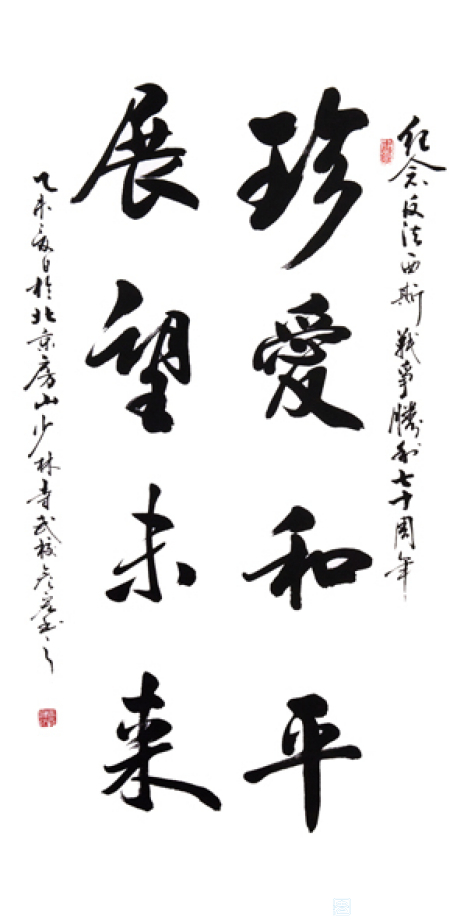 纪念反法西斯战争勝利七十周年
珍愛和平
展望未来
乙未夏日於北京房山少林寺武校